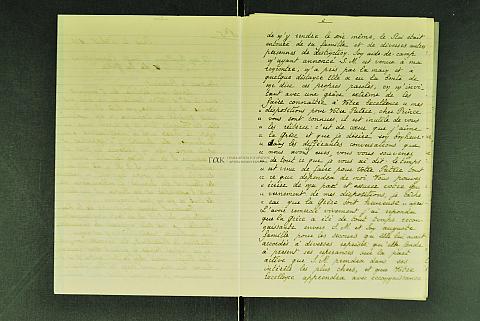 de m'y rendre le soir même, le Roi était
entouré de sa famille et de diverses autres
personnes de distinction. Son aide-de-camp
m'ayant annoncé S.M. est venue à ma
rencontre, m'a pris par la main et à
quelque distance Elle a eu la bonté de
me dire ces propres paroles, en m'invi-
tant avec une grâce extrême de les
faire connaître à Votre Excellence « mes
« dispositions pour Votre Patrie, cher Prince
« vous sont connues, il est inutile de vous
« les réitérer c'est de cœur que j'aime
« la Grèce et que je désire son bonheur
« dans les différentes conversations que
« nous avons eues, vous vous souvenez
« de tout ce que je vous ai dit. le temps
« est venu de faire pour Votre Patrie tout
« ce que dépendra de moi. Vous pouvez
« écrire de ma part et assurer votre Gou-
« vernement de mes dispositions, je
« que la Grèce soit heureuse
L'ayant remercié vivement j'ai répondu
que la Grèce a été de tout temps recon-
naissante envers S.M. et Son auguste
famille pour les secours qu'Elle lui avait
accordés à diverses reprises qu'elle fonde
à présent ses espérances sur la part
active que S.M. prendra dans ses
intérêts les plus chers, et que Votre
Excellence apprendra avec reconnaissance
ΓΑΚ